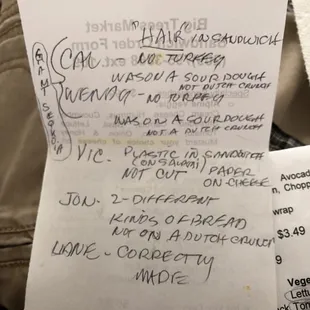 "HAIR" IN SANDWICH
CAL - NO TURKEY
WAS ON A SOURDOUGH
NOT DUTCH CRUNCH
WENDY - NO TURKEY
WAS ON A SOURDOUGH
NOT A DUTCH CRUNCH
VIC - PLASTIC IN SANDWICH
(ON SALAMI) PAPER
NOT CUT ON CHEESE
JON - 2 - DIFFERENT
KINDS OF BREAD
NOT ON A DUTCH CRUNCH
- CORRECTLY
MADE
Avocad
n, Chopp
wrap
$3.49
9
Vege
Lettu
Tom